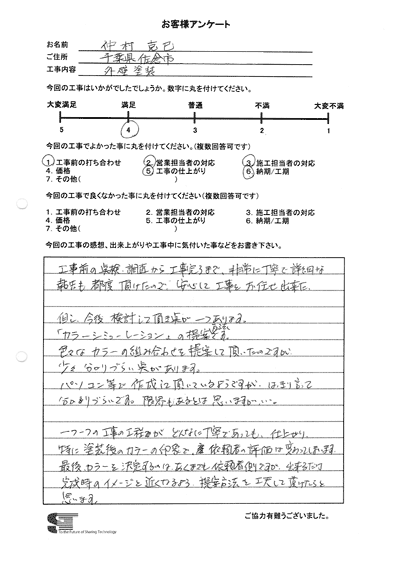 お客様アンケート
お名前 仲村 克已
ご住所 千葉県佐倉市
工事内容 外壁塗装
今回の工事はいかがでしたでしょうか。数字に丸を付けてください。
大変満足 満足 普通 不満 大変不満
5 4 3 2 1
今回の工事でよかった事に丸を付けてください。(複数回答可です)
1. 工事前の打ち合わせ 2. 営業担当者の対応 3. 施工担当者の対応
4. 価格 5. 工事の仕上がり 6. 納期/工期
7. その他( )
今回の工事で良くなかった事に丸を付けてください(複数回答可です)
1. 工事前の打ち合わせ 2. 営業担当者の対応 3. 施工担当者の対応
4. 価格 5. 工事の仕上がり 6. 納期/工期
7. その他( )
今回の工事の感想、出来上がりや工事中に気付いた事などをお書き下さい。
工事前の点検、調査から工事完了まで、非常に丁寧で詳細な
報告も都度頂けたので安心して工事をお任せ出来た。
但し、今後検討して頂き点が一つあります。
「カラーシミュレーション」の提案です。
色々なカラーの組み合わせを提案して頂いたのですが
少々分かりづらい点があります。
パソコン等で作成して頂いているようですが、はっきり言って
分かりづらいです。限界もあるとは思いますが...
一つ一つの工事の工程がどんなに丁寧であっても、仕上がり
特に塗装後のカラーの印象で、依頼者の評価は変わってしまいます
最後、カラーを決定するのはあくまでも依頼者側ですが、出来るだけ
完成時のイメージと近くなるよう、提案方法を工夫して頂けたらと
思います。
to the Future of Sharing Technology
ご協力有難うございました。